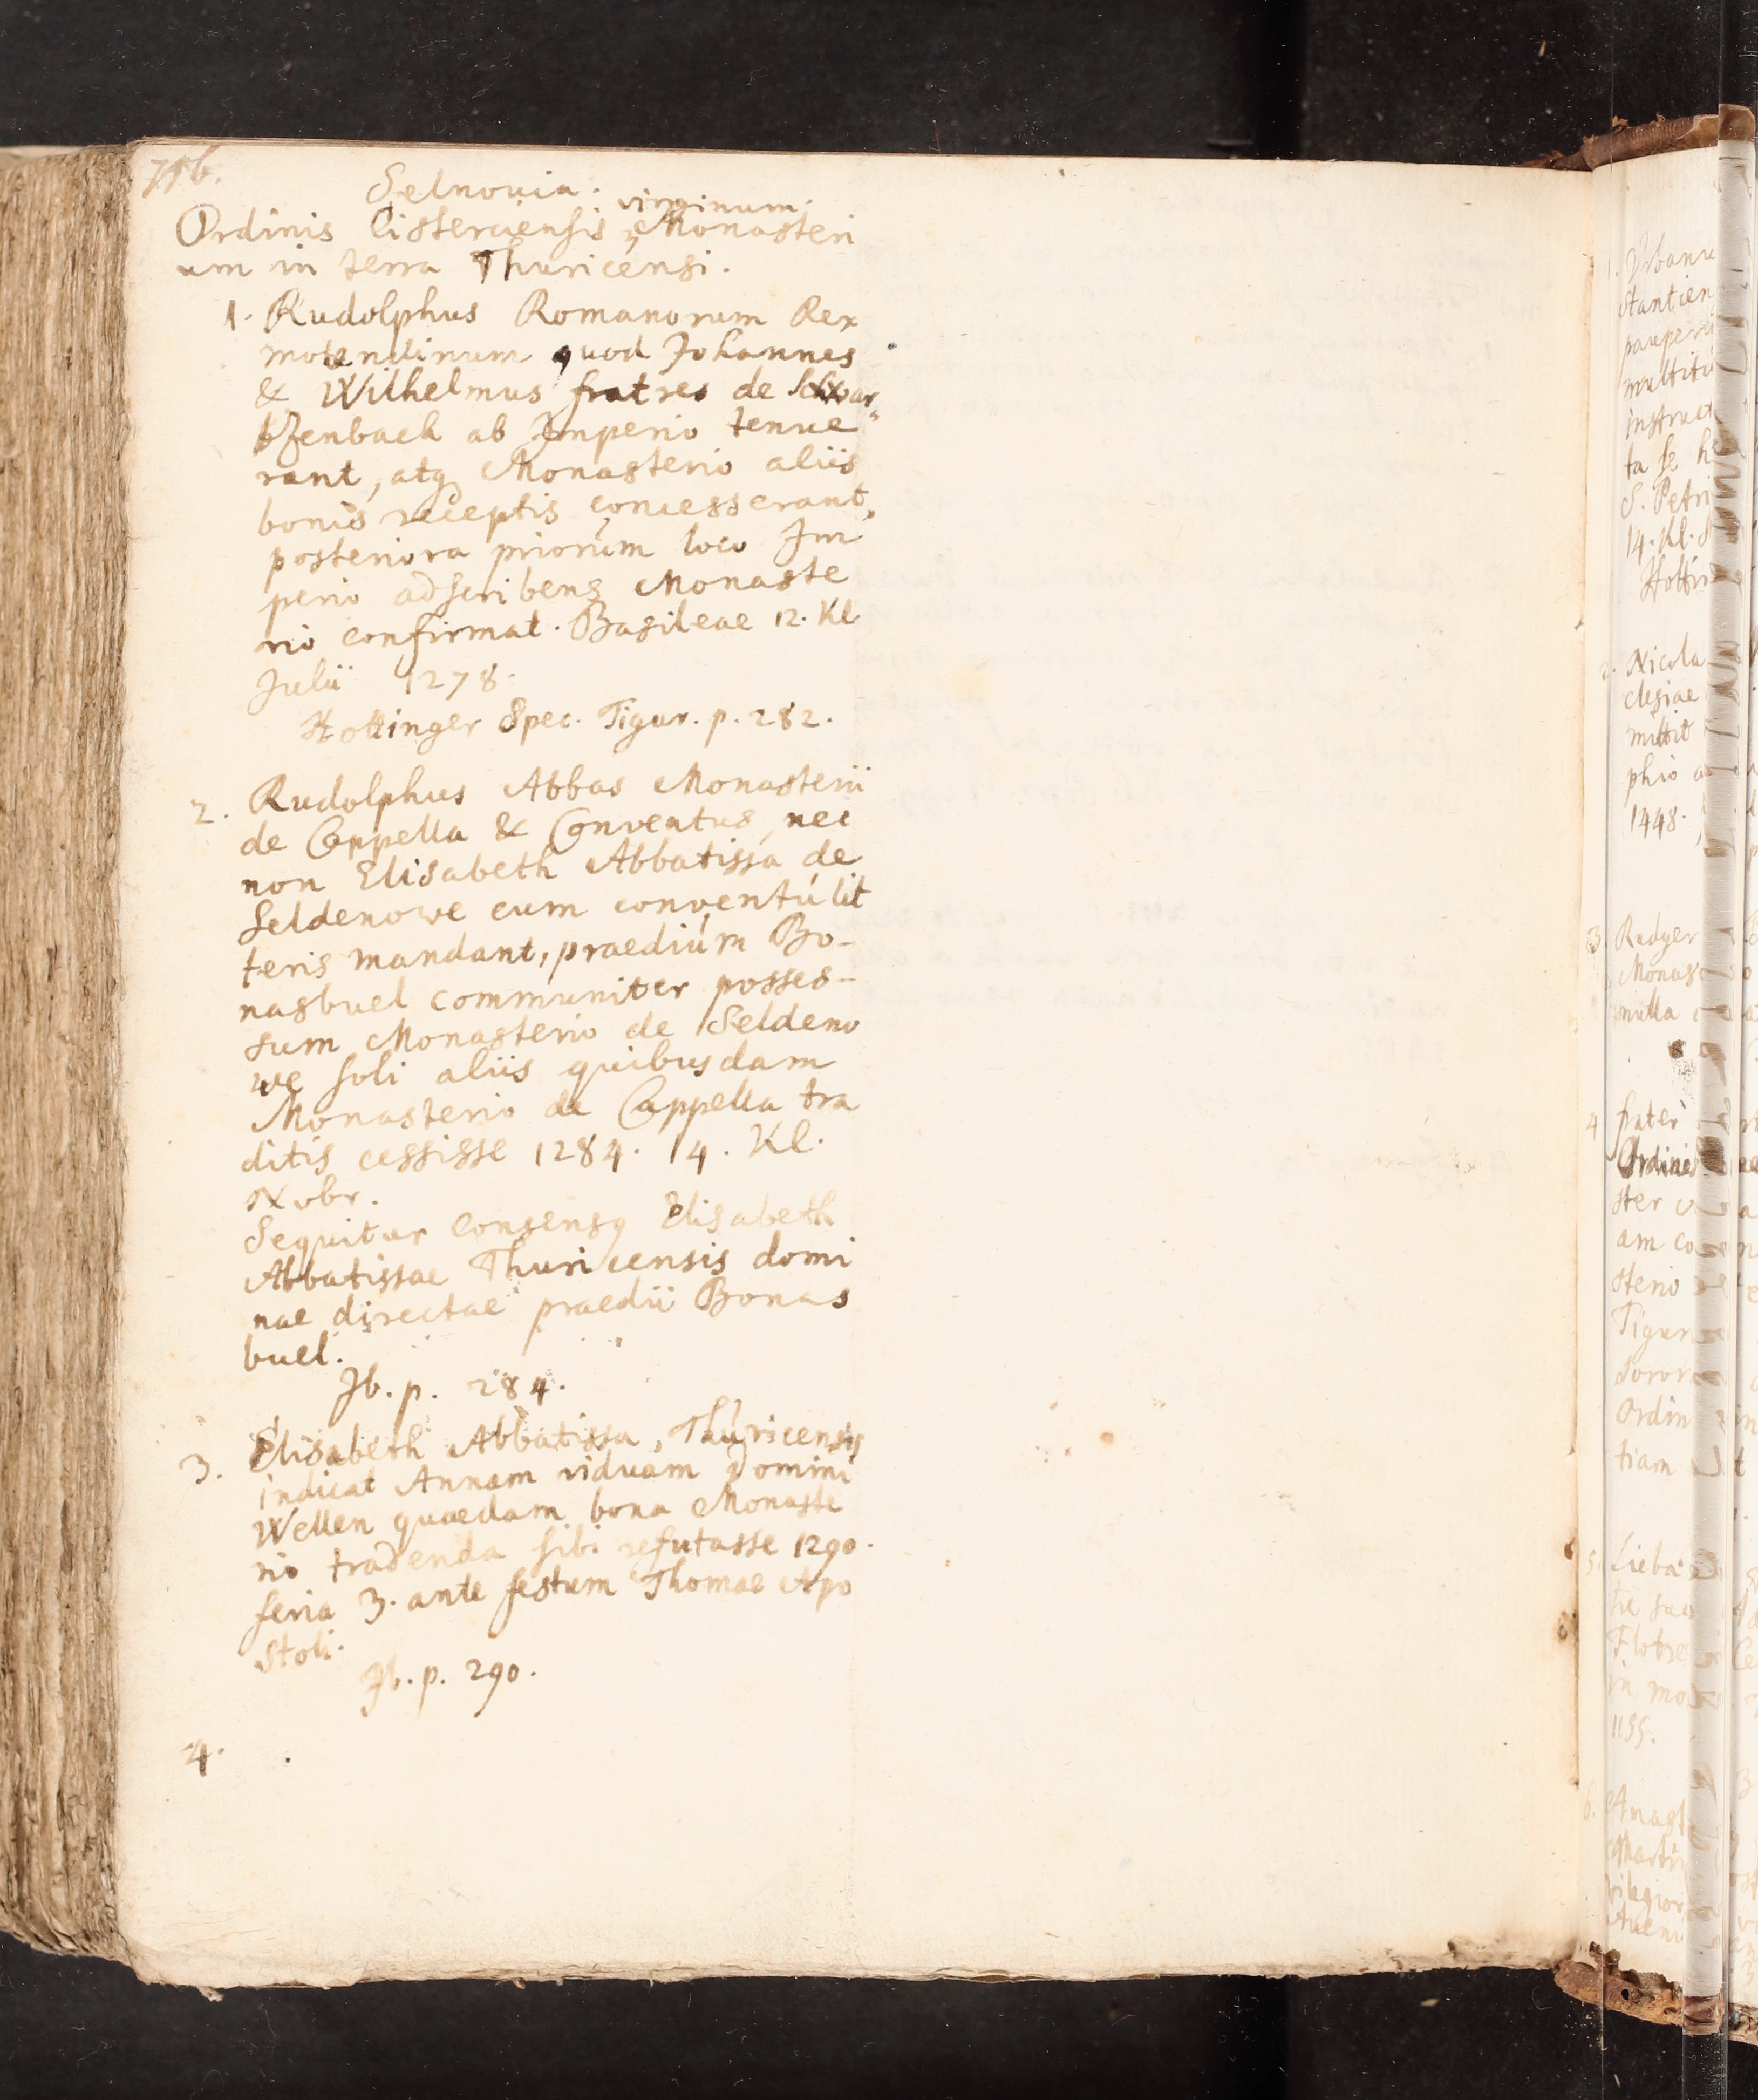 Selnouia.
virginum.
Ordinis Cisterciensis, Monasteri
um in terra Thuricensi.
1. Rudolphus Romanorum Rex
molendinum quod Johannes
& Wilhelmus fratres de Schwar-
tzenbach ab Imperio tenue
rant, atq Monasterio aliis
bonis receptis concesserant,
posteriora priorum loco Im
perio adscribens Monaste
rio confirmat. Basileae 12. Kl
Julii 1278.
Hottinger Spec. Tigur. p. 282.
2. Rudolphus Abbas Monasterii
de Cappella & Conventus, nec
non Elisabeth Abbatissa de
Seldenowe cum conventu lit
teris mandant, praedium Bo-
nasbuel communiter posses-
sum Monasterio de Seldeno
we soli aliis quibusdam
Monasterio de Cappella tra
ditis cessisse 1284. 14. Kl.
Nvbr.
Sequitur consensq Elisabeth
Abbatissae Thuricensis domi
nae directae praedii Bonas
buel.
Ib. p. 284.
3. Elisabeth Abbatissa, Thuricensis
indicat Annam viduam Domini
Wellen quaedam bona Monaste
rio tradenda sibi refutasse 1290.
feria 3. ante festum Thomae Apo
stoli.
Ib. p. 290.
4.
1. Urbanu
stantien
pauperi
multitu
instruct
ta se h
S. Petri
14. Kl. S
Hottin
2. Nicola
clesiae
mittit
phio a
1448.
3 Rudger
Monas
nulla
4 frater
Ordinis
ster
am co
sterio
Tigur
soror
Ordin
tiam
5. Lieba
tie sua
Flobre
in mo
1155.
6. Anast
Martin
vilegior
Aveni